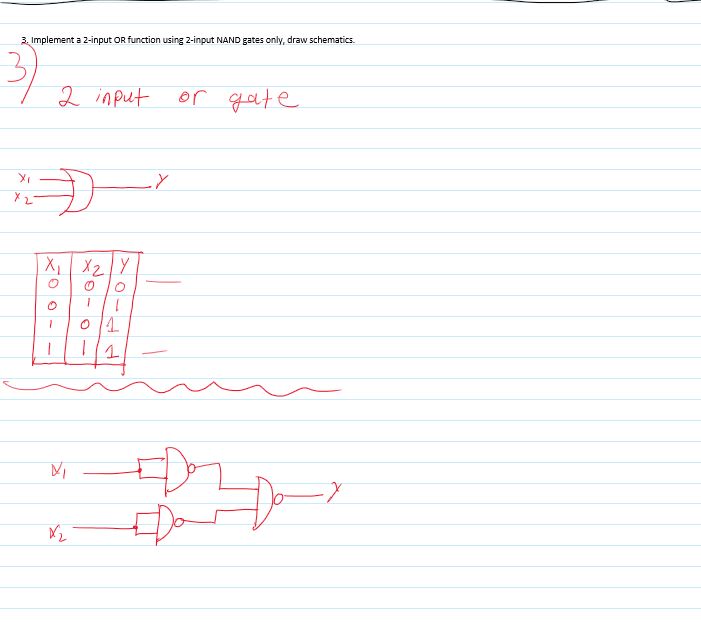 3. Implement a 2-input OR function using 2-input NAND gates only, draw schematics.
3)
2 input or gate
X1
X2
Y
X1 X2 Y
0 0 0
0 1 1
1 0 1
1 1 1
X1
X2
Y